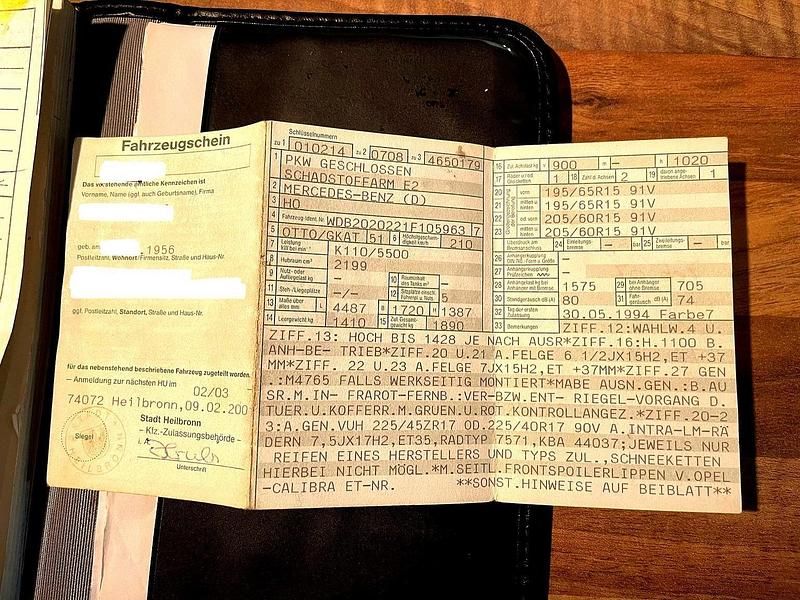 Fahrzeugschein
Das vorstehende amtliche Kennzeichen ist
Vorname, Name (ggf. auch Geburtsname), Firma
geb. am . 1956
Postleitzahl, Wohnort/Firmensitz, Straße und Haus-Nr.
ggf. Postleitzahl, Standort, Straße und Haus-Nr.
für das nebenstehend beschriebene Fahrzeug zugeteilt worden.
Anmeldung zur nächsten HU im 02/03
74072 Heilbronn, 09.02.200
Stadt Heilbronn
- Kfz.-Zulassungsbehörde -
Siegel
i.A.
Unterschrift
Schlüsselnummern
zu 1 010214 zu 2 0708 zu 3 4650179
1 PKW GESCHLOSSEN
SCHADSTOFFARM E2
2 MERCEDES-BENZ (D)
3 HO
4 Fahrzeug-Ident.Nr. WDB2020221F105963 7
5 OTTO/GKAT 51 6 Höchstgeschw.-digkeit km/h 210
7 Leistung kW bei min⁻¹ K110/5500
8 Hubraum cm³ 2199
9 Nutz- oder Aufliegelast kg 10 Rauminhalt des Tanks m³ -
11 Steh-/Liegeplätze -/- 12 Sitzplätze einschl. Führerpl. u. Nots. 5
13 Maße über alles mm L 4487 B 1720 H 1387
14 Leergewicht kg 1410 15 Zul. Gesamtgewicht kg 1890
16 Zul. Achslast kg v 900 m - h 1020
17 Räder u/od Gleisketten 1 18 Zahl d. Achsen 2 19 davon angetriebene Achsen 1
20 vorn 195/65R15 91V
21 mitten u. hinten 195/65R15 91V
22 od. vorn 205/60R15 91V
23 mitten u. hinten 205/60R15 91V
Überdruck am Bremsanschluss 24 Einleitungsbremse - bar 25 Zweileitungsbremse - bar
26 Anhängerkupplung DIN 740.., Form u. Größe -
27 Anhängerkupplung Prüfzeichen -
28 Anhängelast kg bei Anhänger mit Bremse 1575 29 bei Anhänger ohne Bremse 705
30 Standgeräusch dB (A) 80 31 Fahrgeräusch dB (A) 74
32 Tag der ersten Zulassung 30.05.1994 Farbe7
33 Bemerkungen ZIFF.12:WAHLW.4 U.
ZIFF.13: HOCH BIS 1428 JE NACH AUSR*ZIFF.16:H.1100 B.
ANH-BE- TRIEB*ZIFF.20 U.21 A.FELGE 6 1/2JX15H2,ET +37
MM*ZIFF. 22 U.23 A.FELGE 7JX15H2,ET +37MM*ZIFF.27 GEN
.:M4765 FALLS WERKSEITIG MONTIERT*MABE AUSN.GEN.:B.AU
SR.M.IN- FRAROT-FERNB.:VER-BZW.ENT- RIEGEL-VORGANG D.
TUER.U.KOFFERR.M.GRUEN.U.ROT.KONTROLLANGEZ.*ZIFF.20-2
3:A.GEN.VUH 225/45ZR17 OD.225/40R17 90V A.INTRA-LM-RÄ
DERN 7,5JX17H2,ET35,RADTYP 7571,KBA 44037;JEWEILS NUR
REIFEN EINES HERSTELLERS UND TYPS ZUL.,SCHNEEKETTEN
HIERBEI NICHT MÖGL.*M.SEITL.FRONTSPOILERLIPPEN V.OPEL
-CALIBRA ET-NR. **SONST.HINWEISE AUF BEIBLATT**